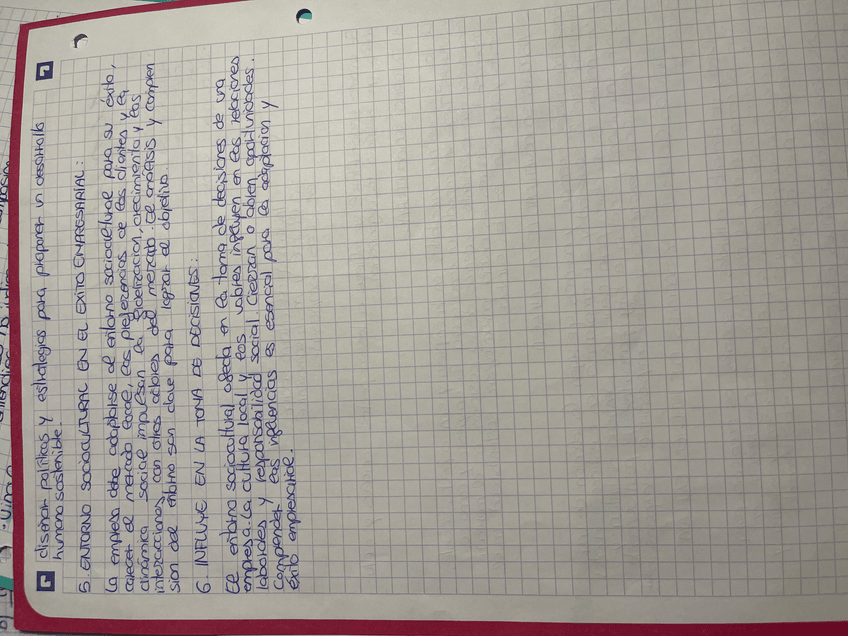 diseñar políticas y estrategias para proponer un desarrollo
humano sostenible.
5. ENTORNO SOCIOCULTURAL EN EL EXITO EMPRESARIAL:
La empresa debe adaptarse al entorno sociocultural para su éxito,
conocer el mercado local, las preferencias de los clientes y la
dinámica social impulsan la fidelizacion, crecimiento y las
interacciones con otros actores del mercado. El análisis y compren
sion del entorno son clave para lograr el objetivo.
6. INFLUYE EN LA TOMA DE DECISIONES:
El entorno sociocultural afecta en la toma de decisiones de una
empresa. La cultura local y los valores influyen en las relaciones
laborales y responsabilidad social. Cierran o abren oportunidades.
Comprender las influencias es esencial para la adaptacion y
éxito empresarial.